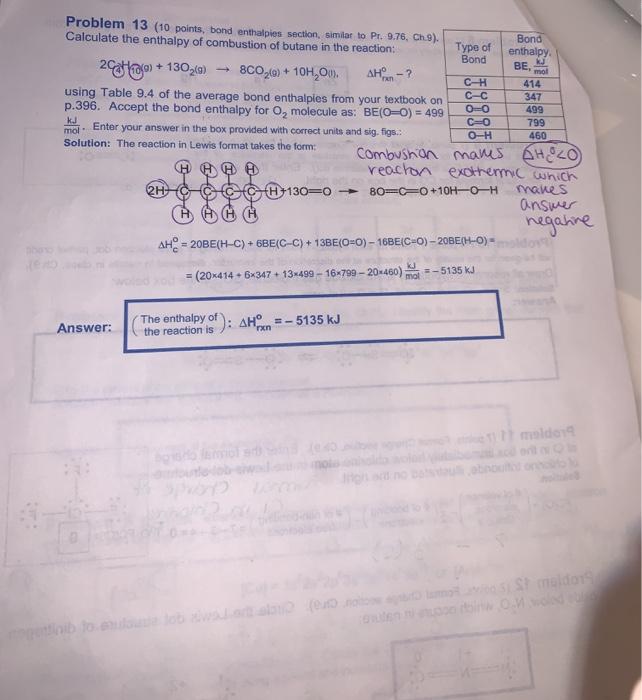 Problem 13 (10 points, bond enthalpies section, similar to Pr. 9.76, Ch.9).
Calculate the enthalpy of combustion of butane in the reaction:
2C4H10(g) + 13O2(g) → 8CO2(g) + 10H2O(l), ΔH°rxn - ?
using Table 9.4 of the average bond enthalpies from your textbook on
p.396. Accept the bond enthalpy for O2 molecule as: BE(O=O) = 499
kJ/mol. Enter your answer in the box provided with correct units and sig. figs.:
Type of Bond | Bond enthalpy, BE, kJ/mol
C–H 414
C–C 347
O=O 499
C=O 799
O–H 460
Solution: The reaction in Lewis format takes the form:
combushon makes ΔH°c<0
reachon exothermic which
makes
answer
negahne
H H H H
2H–C–C–C–C–H+13O=O → 8O=C=O+10H–O–H
H H H H
ΔH°c = 20BE(H–C) + 6BE(C–C) + 13BE(O=O) – 16BE(C=O) – 20BE(H–O) =
= (20×414 + 6×347 + 13×499 – 16×799 – 20×460) kJ/mol = – 5135 kJ
Answer: (The enthalpy of the reaction is): ΔH°rxn = – 5135 kJ